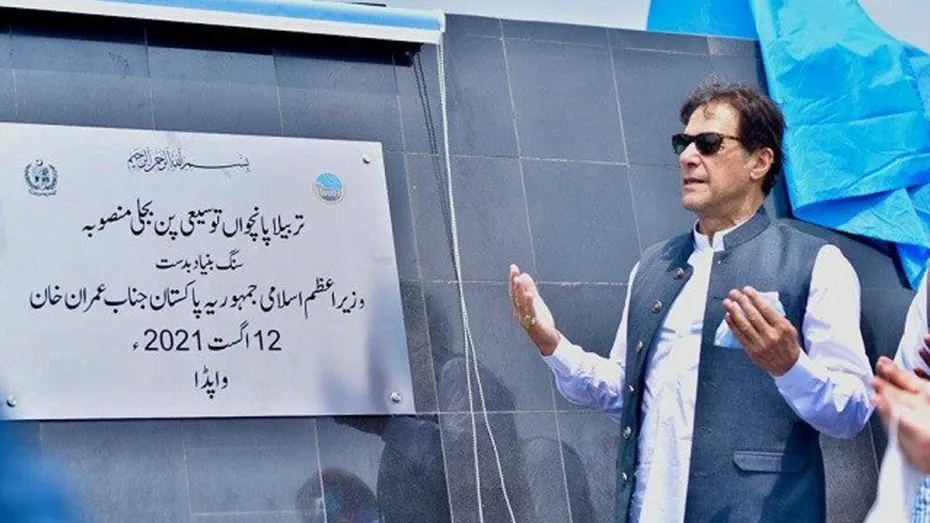 بسم اللہ الرحمن الرحیم
تربیلا پانچواں توسیعی پن بجلی منصوبہ
سنگ بنیاد بدست
وزیر اعظم اسلامی جمہوریہ پاکستان جناب عمران خان
12 اگست 2021ء
واپڈا